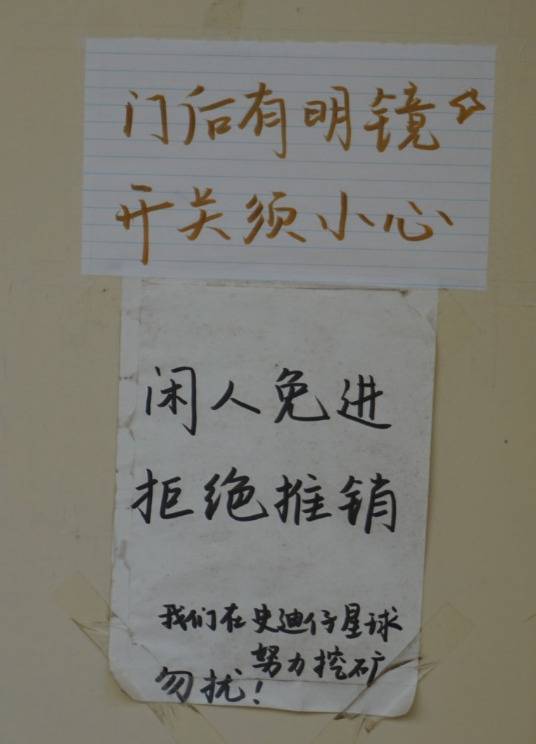 门后有明镜
开关须小心
闲人免进
拒绝推销
我们在史迪仔星球
努力挖矿
勿扰！